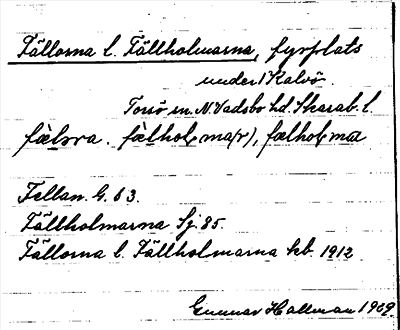 Fällorna l. Fällholmarna, fyrplats
under Kalvö.
Torsö sn. N. Vadsbo hd. Skarab. l.
fællholmar
Fellan G. 63.
Fällholmarna Sj. 85.
Fällorna l. Fällholmarna kb. 1912.
Gunnar Hallman 1909